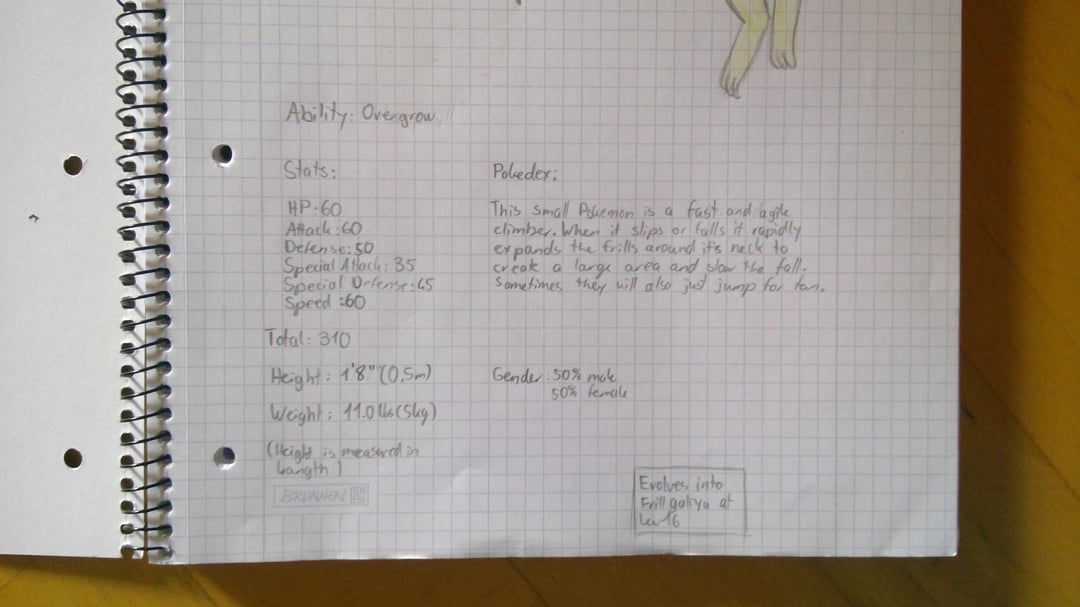 Ability: Overgrow
Stats:
HP:60
Attack:60
Defense:50
Special Attack: 35
Special Defense:45
Speed :60
Total: 310
Height: 1'8" (0,5m)
Weight: 11.0 lbs (5kg)
(Height is measured in
Length)
BRUNNEN
Pokedex:
This small Pokemon is a fast and agile
climber. When it slips or falls it rapidly
expands the frills around it's neck to
creak a large area and slow the fall.
Sometimes they will also just jump for fun.
Gender: 50% male
50% female
Evolves into
at
Lev 16